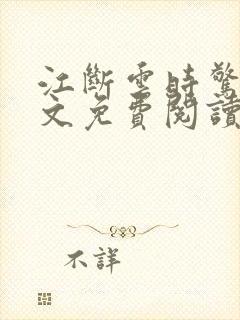 江斷雲時驚
文免費閱讀
不詳